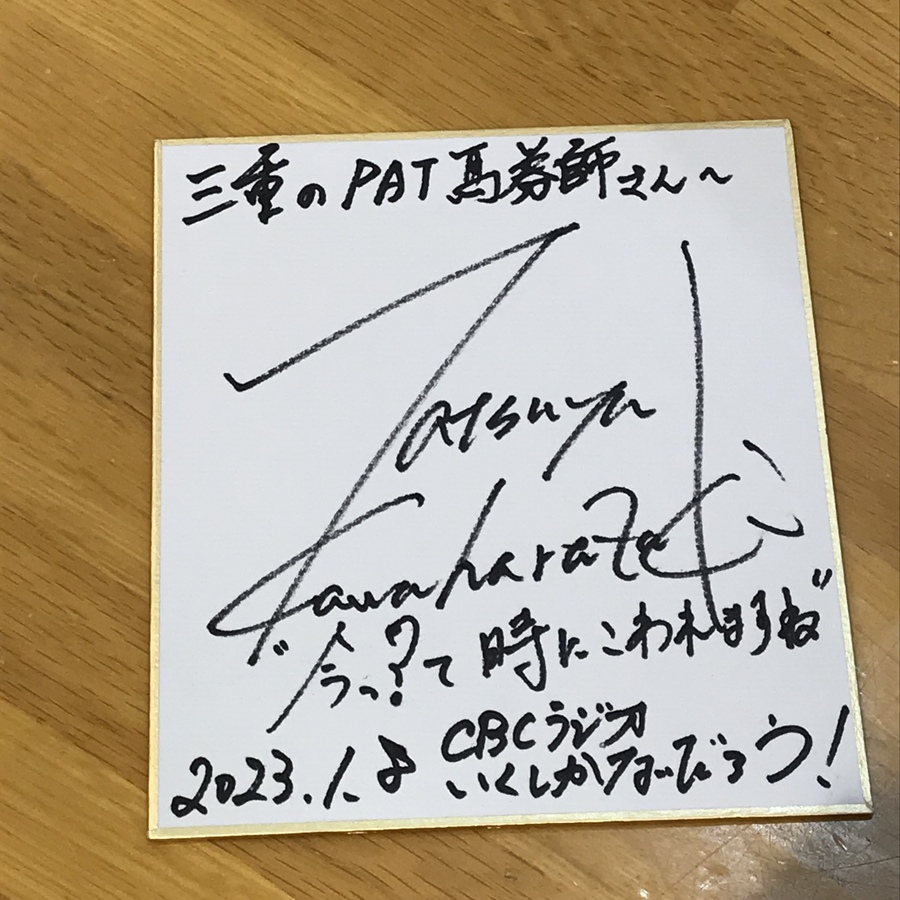 三重のPAT馬券師さん～
Tatsuya
Kawaharazaki
"今っ?て時にこわれますね"
2023.1.8 CBCラジオ
いくしかないだろう!